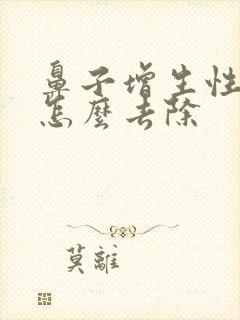 鼻子增生性
怎麼去除
莫離